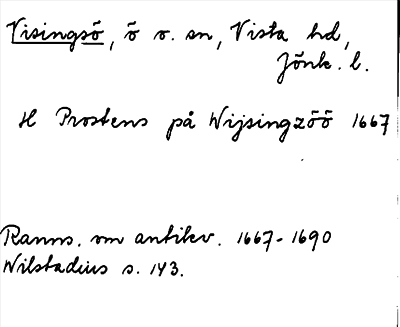 Visingsö, ö o. sn, Vista hd,
Jönk. l.
H Prostens på Wijsingzöö 1667
Ranns. om antikv. 1667-1690
Wilstadius s. 143.